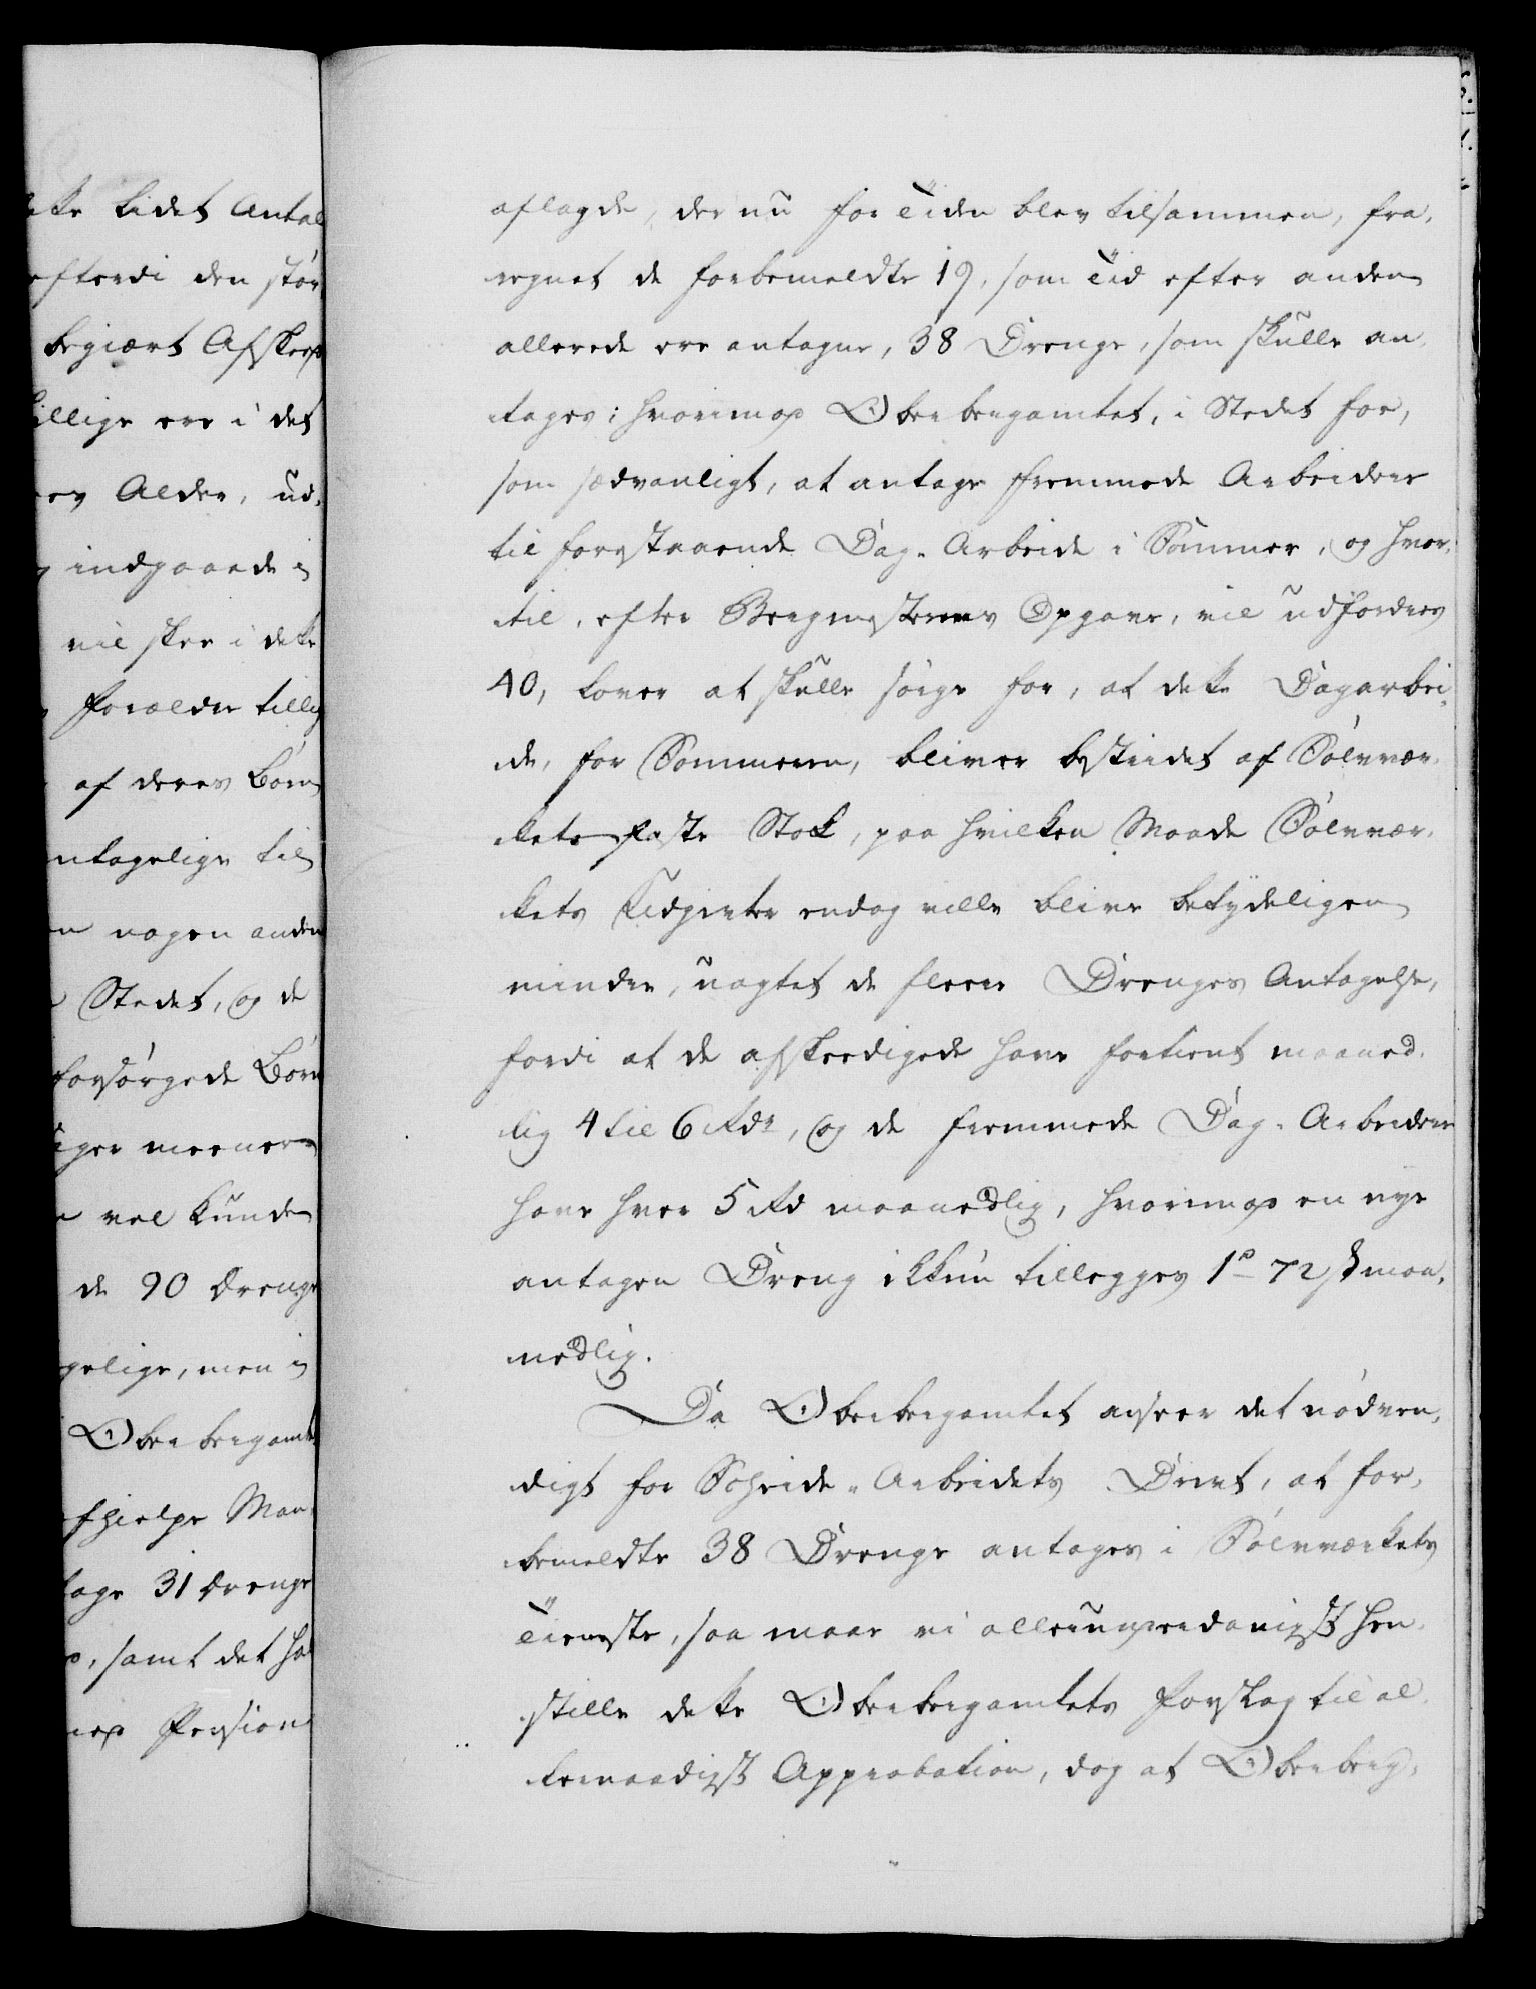 tte lidet Antal
efterdi den stør
begiært Afskeed
tillige ere i det
res Alder, ud-
indgaaede i
vil skee i dette
Forældre tillig
af deres Børn
ntagelige til
en nogen anden
Stedet, og de
forsørgede Børn
iger meener
vel kunde
de 90 Drenge
gelige, men i
Oberbergamte
afhielpe Man
tage 31 Drenge
, samt det ha
Pension
aflagde, der nu for Tiden blev tilsammen, fra-
regnet de forbemeldte 19, som Tid efter anden
allerede ere antagne, 38 Drenge, som skulle an-
tages; hvorimod Oberbergamtet, i Stedet for,
som sædvanligt, at antage fremmede Arbeidere
til forestaaende Dag-Arbeide i Sommer, og hvor-
til, efter Bergmesterens Opgave, vil udfordres
40, lover at skulle sørge for, at dette Dagarbei-
de, for Sommeren, bliver bestridet af Sølvvær-
kets faste Stok, paa hvilken Maade Sølvvær-
kets Udgivter endog ville blive betydeligen
mindre, uagtet de fleere Drenges Antagelse,
fordi at de afskeedigede have fortient maaned-
lig 4 til 6 Rdr, og de fremmede Dag-Arbeidere
have hver 5 Rd maanedlig, hvorimod en nye
antagen Dreng ikkun tillegges 1 Rd 72 ß maa-
nedlig.
Da Oberbergamtet ansees det nødven-
digt for Scheide-Arbeidets Drivt, at for-
bemeldte 38 Drenge antages i Sølvværkets
Tieneste, saa maae vi allerunderdanigst hen-
stille dette Oberbergamtets Forslag til al-
lernaadigst Approbation, dog at Oberberg-